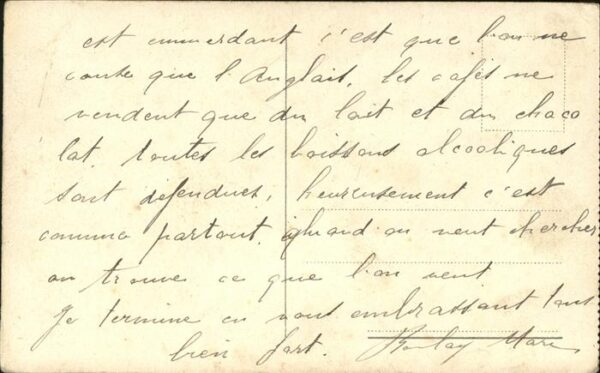 est emmerdant c'est que l'on ne
cause que l'Anglais, les cafés ne
vendent que du lait et du choco
lat. toutes les boissons alcooliques
sont défendues, heureusement c'est
comme partout. quand on veut chercher
on trouve ce que l'on veut
Je termine en vous embrassant tous
bien fort.